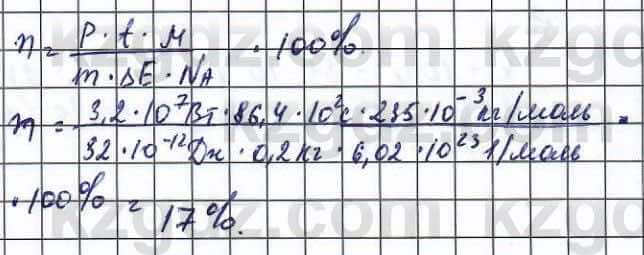 η = P · t · M / m · ΔE · N_A · 100%.
η = 3,2 · 10⁷ Вт · 86,4 · 10²с · 235 · 10⁻³ кг/моль / 32 · 10⁻¹² Дж · 0,2 кг · 6,02 · 10²³ 1/моль ·
· 100% = 17%.